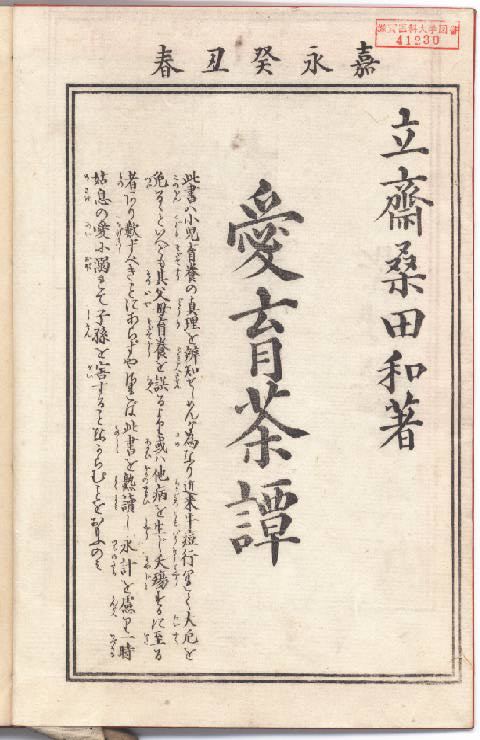 嘉永癸丑春
滋賀医科大学図書
41230
立齋桑田和著
愛育茶譚
此書ハ小児育養の真理を辨知せしめんが為なり近来牛痘行ハれて大厄を
免るといへども其父母育養を誤るより或ハ他病を生じ夭殤するに至る
者あり歎ずべきことにあらずや望らくは此書を熟讀し永計を慮り一時
姑息の愛に溺れて子孫を害することなからむことをねがふのみ